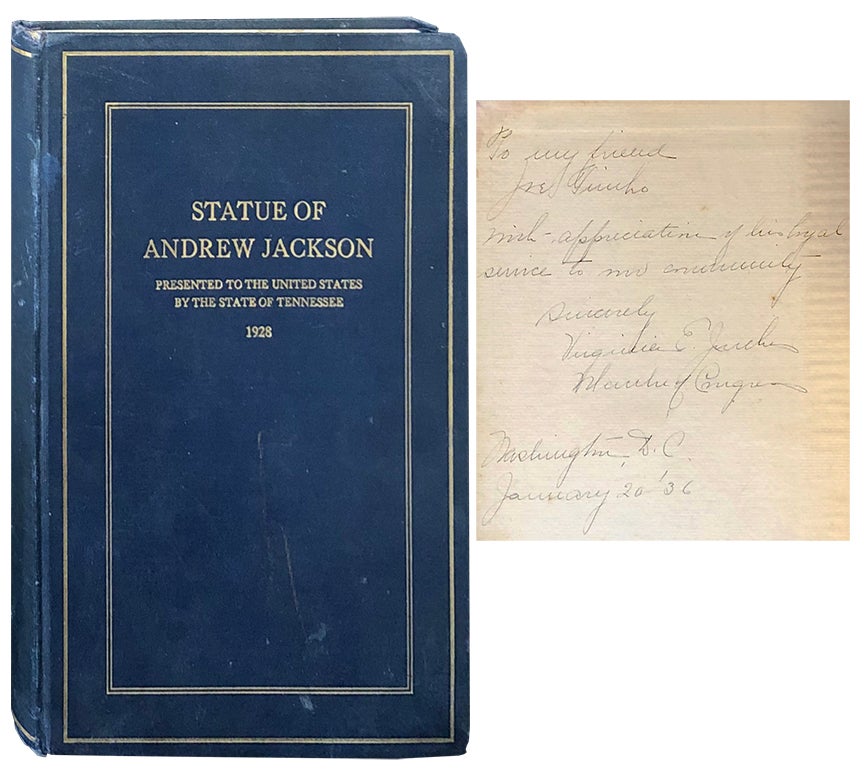 STATUE OF
ANDREW JACKSON
PRESENTED TO THE UNITED STATES
BY THE STATE OF TENNESSEE
1928
To my friend
Joe
With appreciation of his loyal
service to our community
Sincerely
Virginia E. Jenckes
Member of Congress
Washington, D. C.
January 20 '36